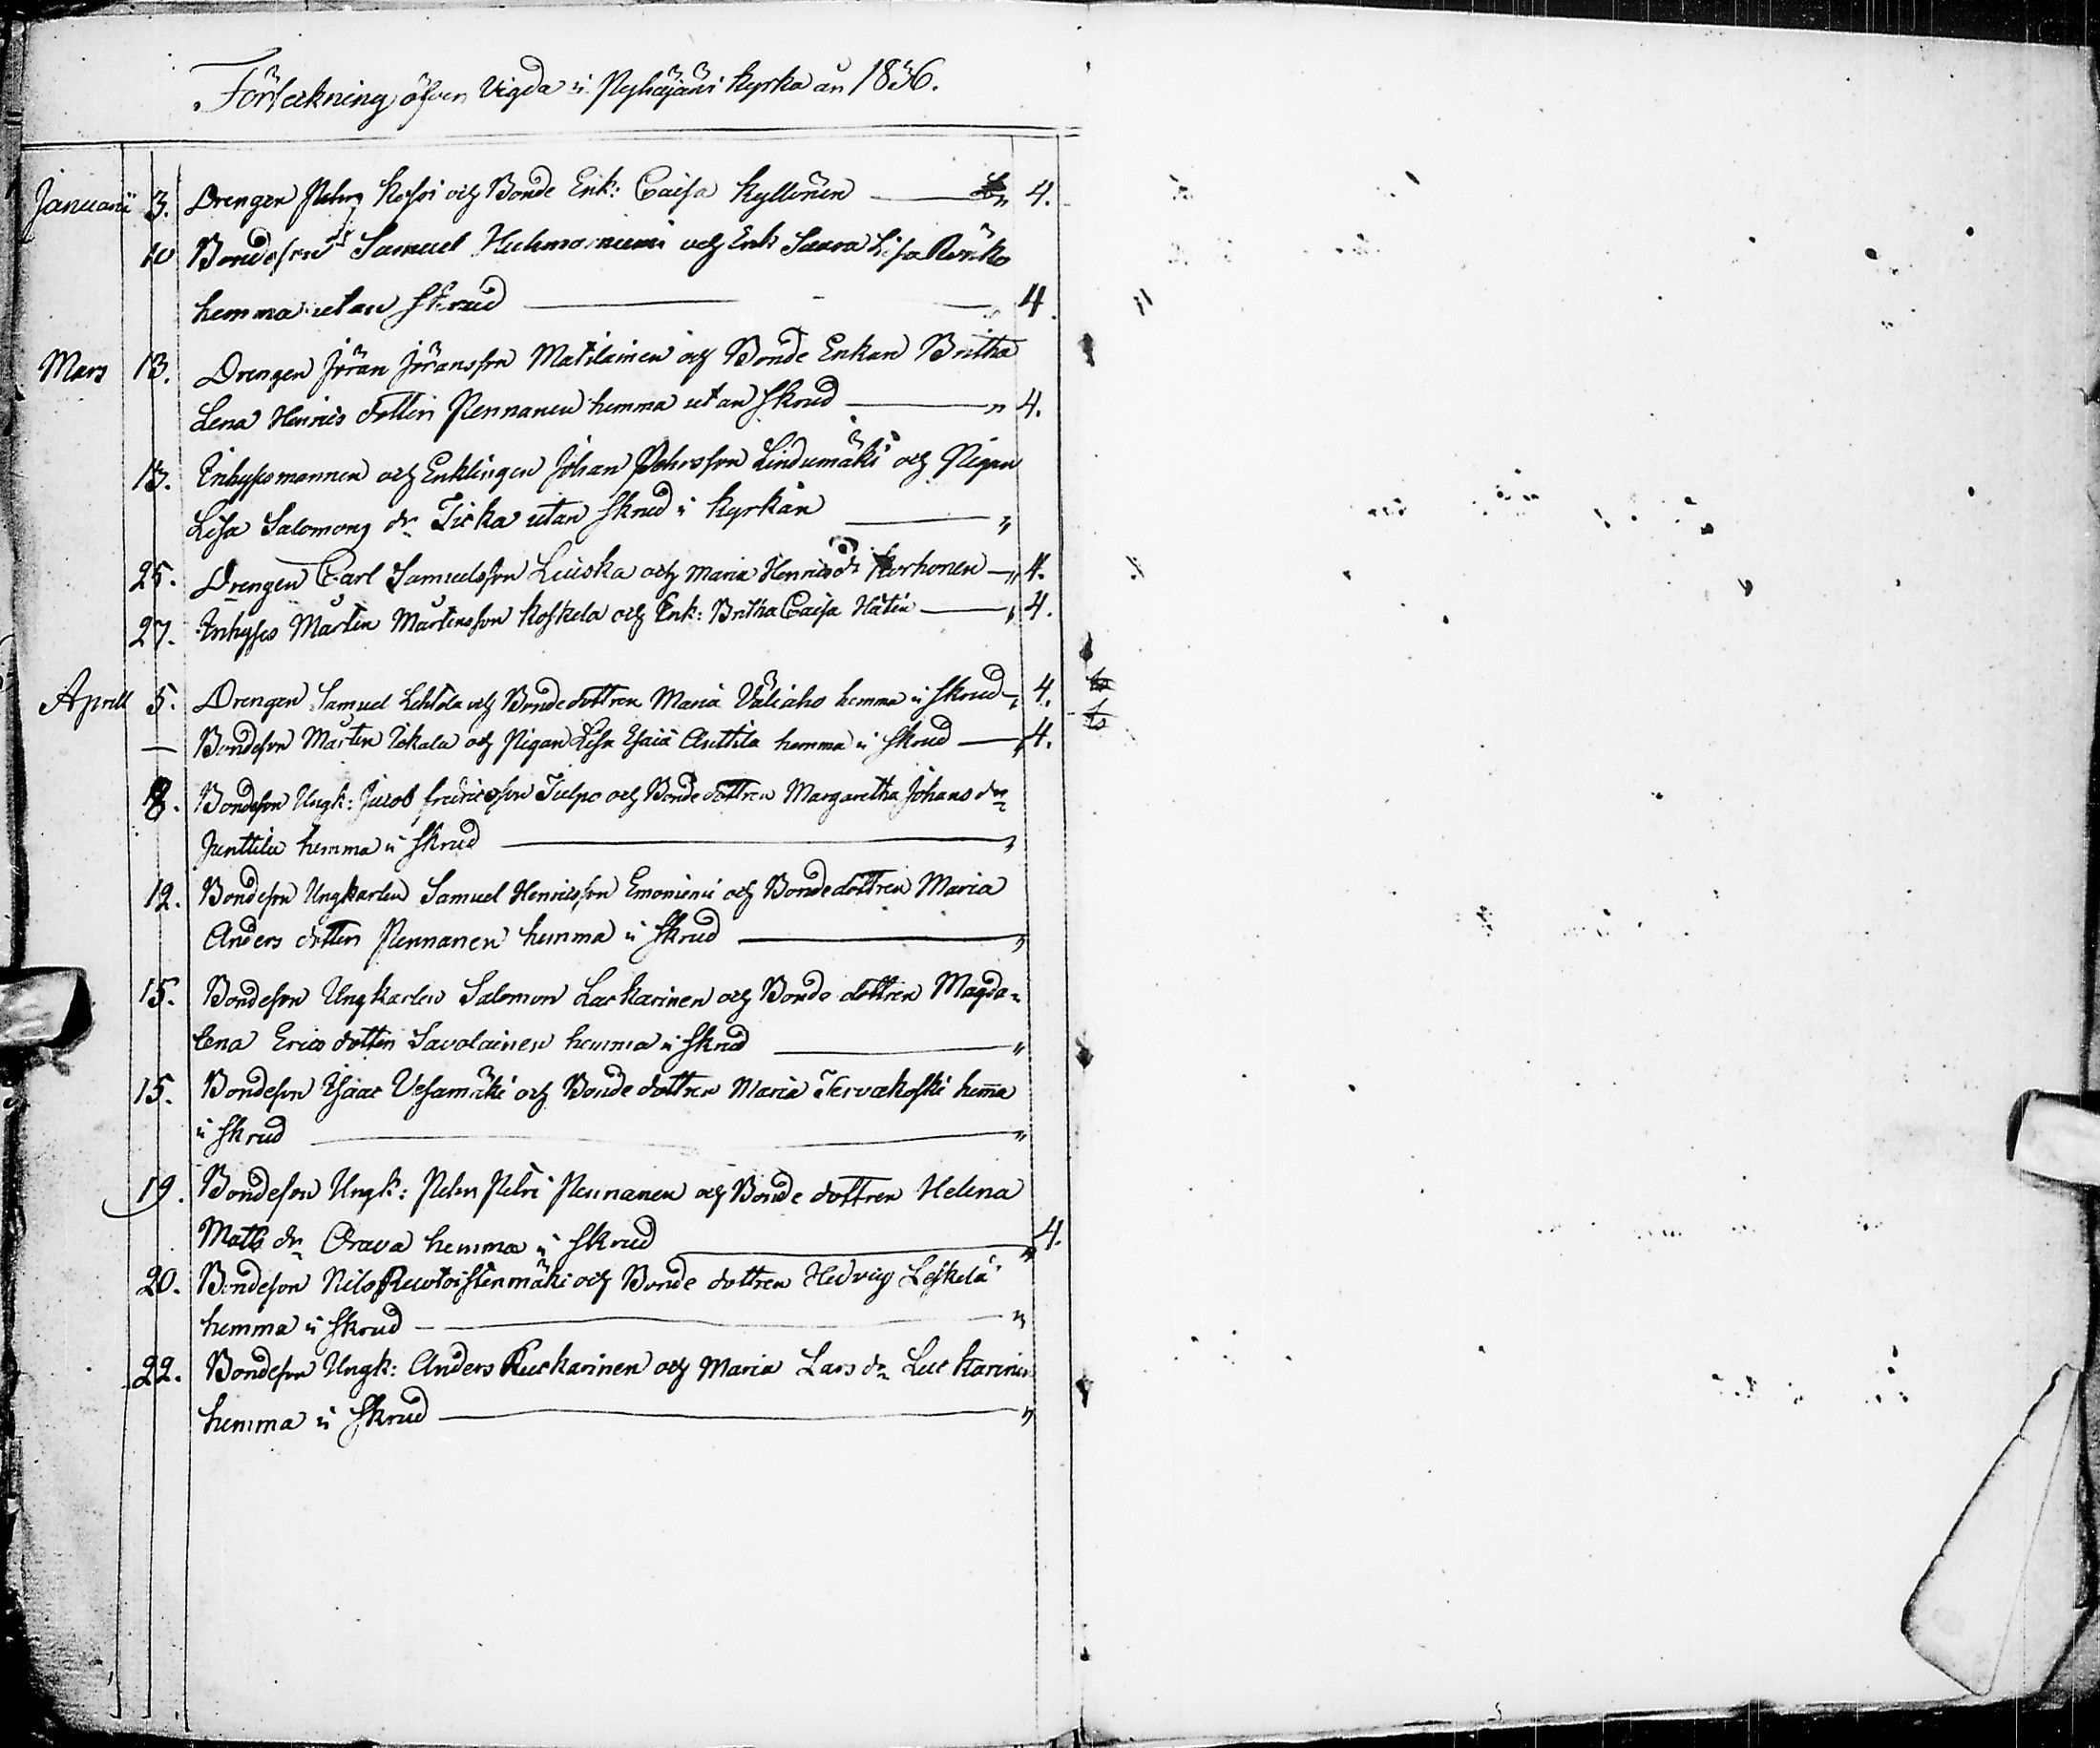 Förteckning öfver Vigda i Pyhäjärvi kyrka år 1836.
Januari 3. Drengen Petter och Bonde Enk: Caisa Kyllönen 4.
10 Bondeson Samuel Huhmarniemi och Enk Saara Lisa
hemma utan skrud 4.
Mars 13. Drengen Jöran Jöransson Matilainen och Bonde Enkan Britha
Lena Henrics dotter Pennanen hemma utan skrud " 4.
13. Inhyses mannen och Enklingen Johan Pehrsson Lindumäki och Pigan
Lisa Salomons dr Ticka utan skrud i kyrkan "
25. Drengen Carl Samuelsson Leiviska och Maria Henrics dr Korhonen " 4.
27. Inhyses Mårten Mårtensson Koskela och Enk: Britha Caisa Hätin " 4.
Aprill 5. Drengen Samuel Lehtola och Bondedottren Maria Väliaho hemma i skrud 4.
— Bondeson Mårten Tikala och Pigan Lisa Esaiæ Anttila hemma i skrud 4.
8. Bondeson Ungk: Jacob fredricsson Tulpo och Bonde dottren Margaretha Johans dr
Junttila hemma i skrud "
12. Bondeson Ungkarlen Samuel Henricsson Emoniemi och Bondedottren Maria
Anders dotter Pennanen hemma i skrud "
15. Bondeson Ungkarlen Salomon Laskarinen och Bonde dottren Magda=
lena Erics dotter Savolainen hemma i skrud "
15. Bondeson Isaac Vesamäki och Bonde dottren Maria Tervakoski hemma
i skrud "
19. Bondeson Ungk: Pehr Petri Pennanen och Bonde dottren Helena
Mats dr Orava hemma i skrud " 4.
20. Bondeson Nils Ruotoistenmäki och Bonde dottren Hedvig Leskelä
hemma i skrud "
22. Bondeson Ungk: Anders Ruskarinen och Maria Lars dr
hemma i skrud "